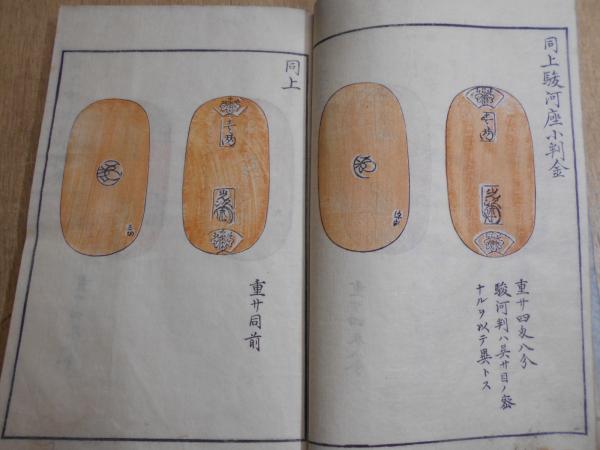 同上駿河座小判金
壱両
光次
重サ四匁八分
駿河判ハ其サ目ノ密
ナルヲ以テ異トス
同上
壱両
光次
重サ同前